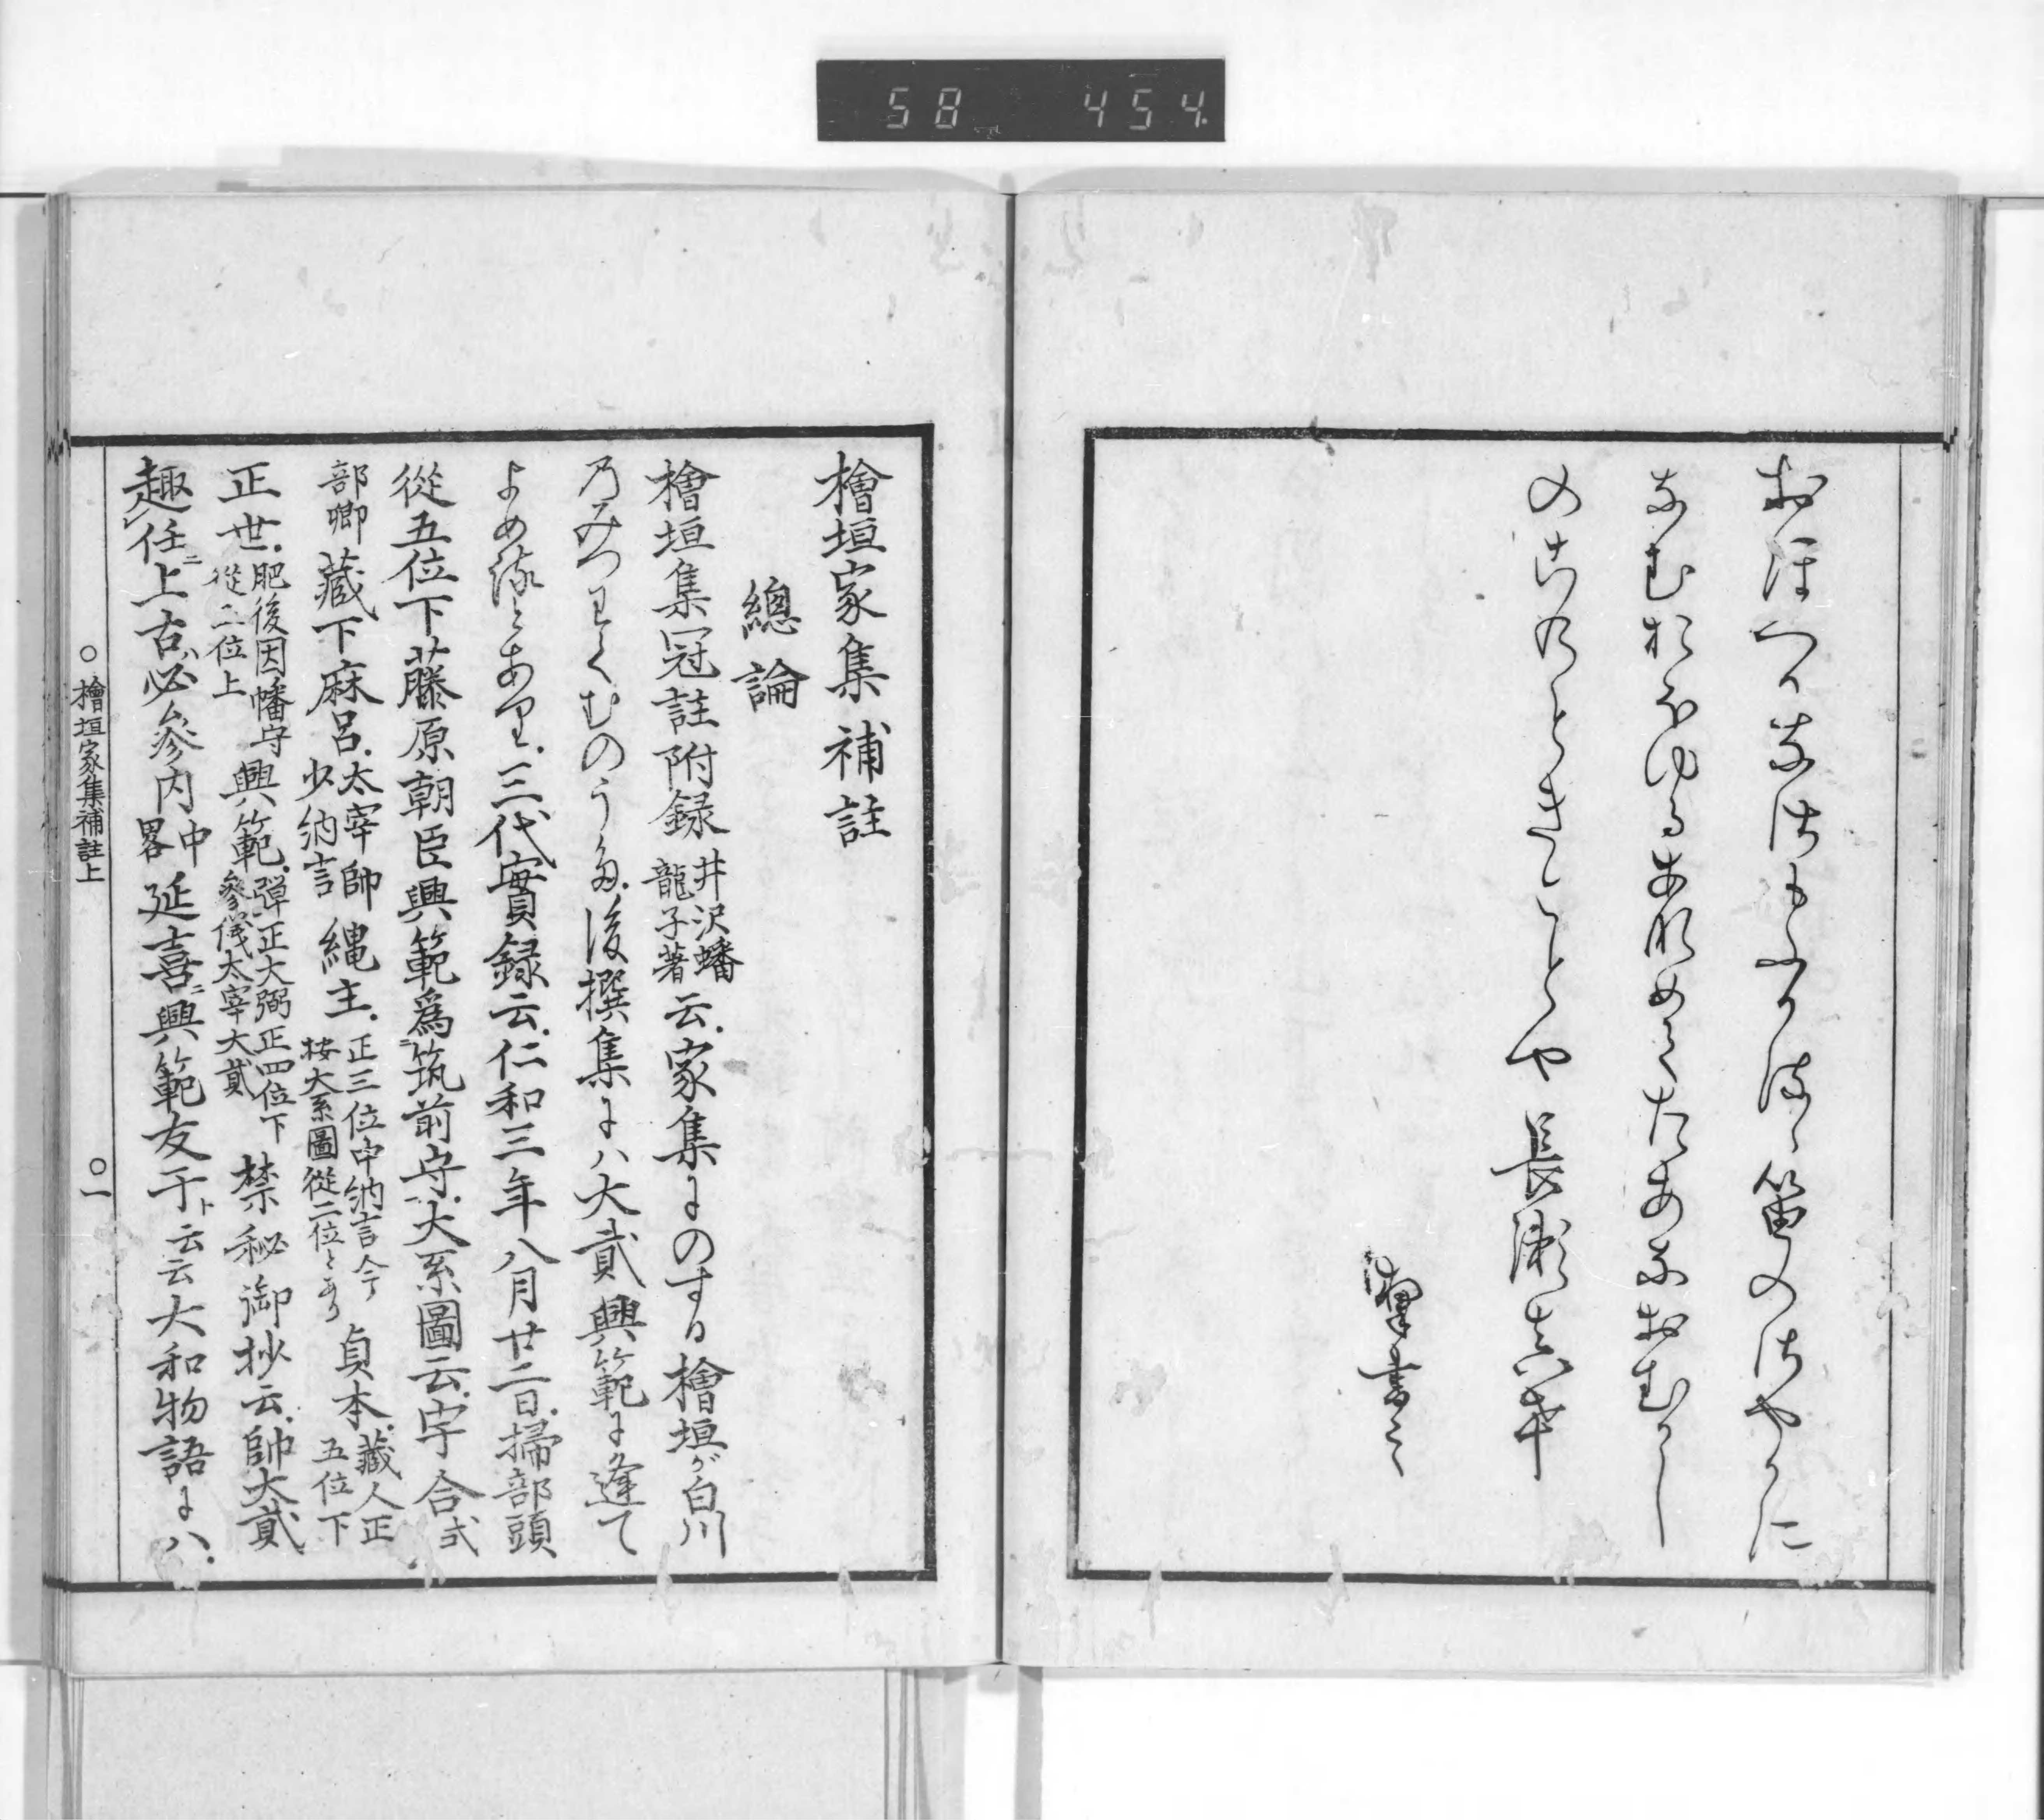 58 454
おほつかなはもふかは笛のはやかに
なむおほゆるあなめてたあなおむかし
のこのときことや長瀬真幸
書之
檜垣家集補註
總論
檜垣集冠註附録井沢蟠龍子著云家集にのする檜垣が白川
乃みつわくむのうた後撰集にハ大貳興範に逢て
よめるとあり三代實録云仁和三年八月廿二日掃部頭
從五位下藤原朝臣興範爲筑前守大系圖云宇合式
部卿藏下麻呂太宰帥少納言縄主正三位中納言今按大系圖從二位とあり貞本藏人正五位下
正世肥後因幡守從二位上興範彈正大弼正四位下參儀太宰大貳禁秘御抄云帥大貳
趣任ニ上古ハ必参内中畧延喜ニ興範友于ト云云大和物語にハ
○檜垣家集補註上 ○一